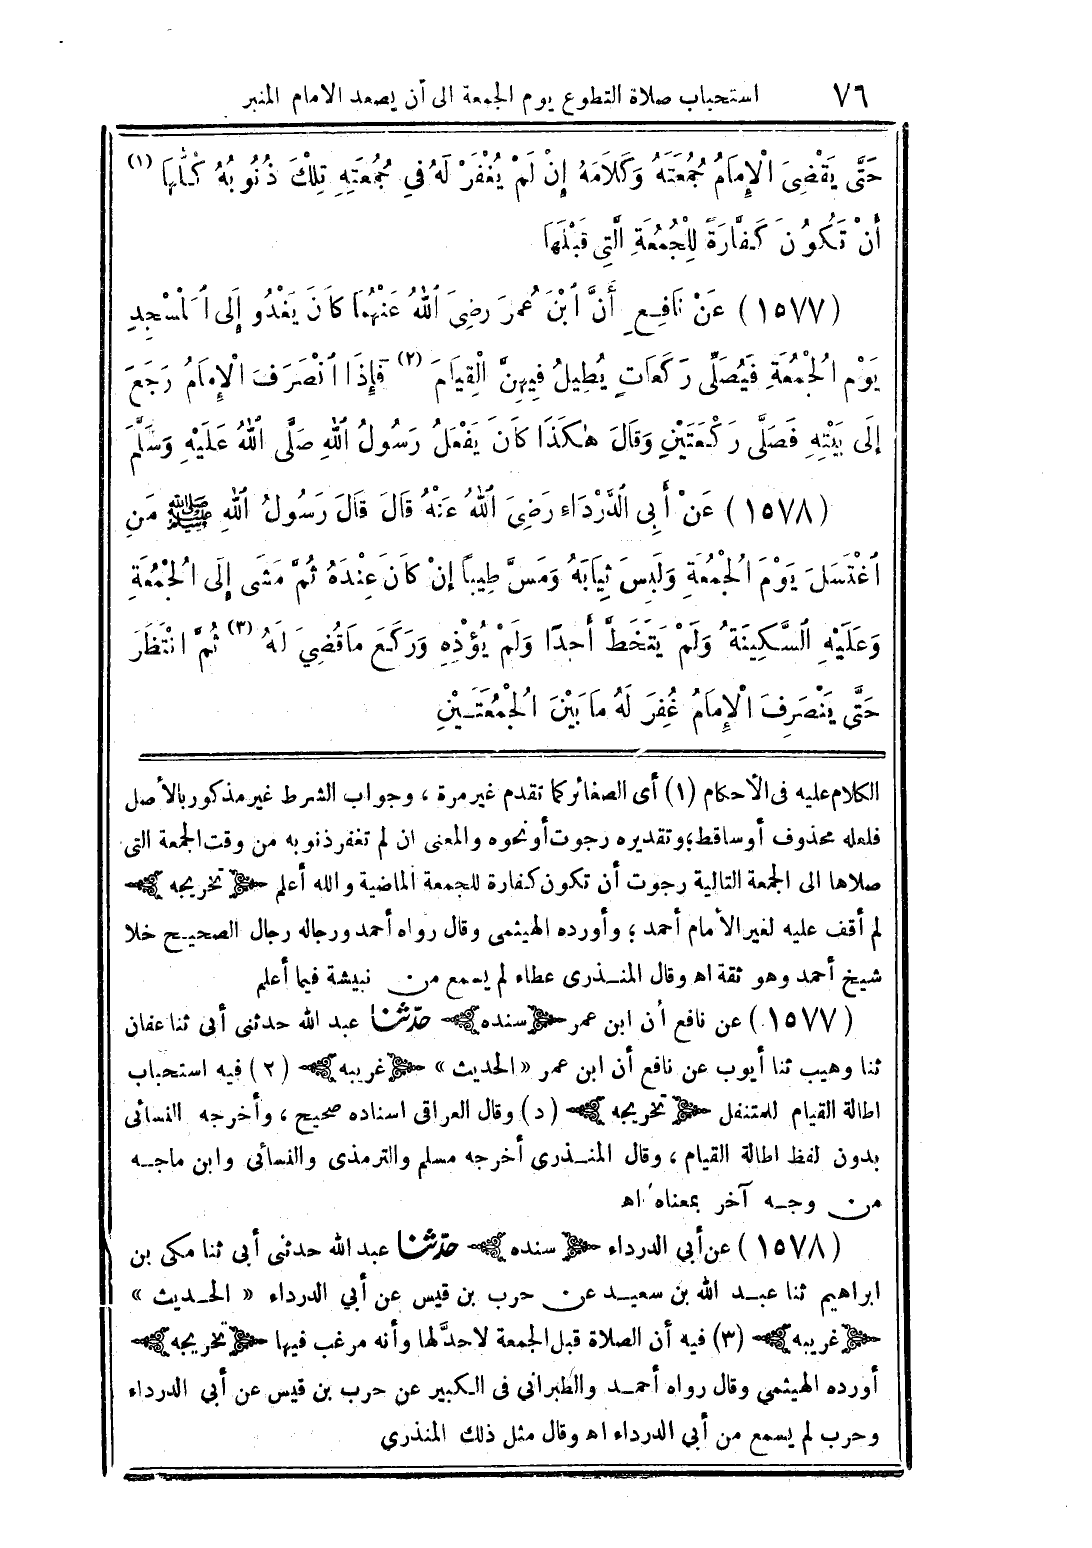 ٧٦ استحباب صلاة التطوع يوم الجمعة الى أن يصعد الامام المنبر
حَتَّى يَقْضِىَ الْإِمَامُ جُمُعَتَهُ وَكَلَامَهُ إِنْ لَمْ يُغْفَرْ لَهُ فِي جُمُعَتِهِ تِلْكَ ذُنُوبُهُ كُلُّهَا (١)
أَنْ تَكُونَ كَفَّارَةً لِلْجُمُعَةِ الَّتِي قَبْلَهَا
(١٥٧٧) عَنْ نَافِعٍ أَنَّ ابْنَ عُمَرَ رَضِيَ اللهُ عَنْهُمَا كَانَ يَغْدُو إِلَى الْمَسْجِدِ
يَوْمَ الْجُمُعَةِ فَيُصَلِّى رَكَعَاتٍ يُطِيلُ فِيهِنَّ الْقِيَامَ (٢) فَإِذَا انْصَرَفَ الْإِمَامُ رَجَعَ
إِلَى بَيْتِهِ فَصَلَّى رَكْعَتَيْنِ وَقَالَ هٰكَذَا كَانَ يَفْعَلُ رَسُولُ اللهِ صَلَّى اللهُ عَلَيْهِ وَسَلَّمَ
(١٥٧٨) عَنْ أَبِى الدَّرْدَاءِ رَضِىَ اللهُ عَنْهُ قَالَ قَالَ رَسُولُ اللهِ ﷺ مَنِ
اغْتَسَلَ يَوْمَ الْجُمُعَةِ وَلَبِسَ ثِيَابَهُ وَمَسَّ طِيباً إِنْ كَانَ عِنْدَهُ ثُمَّ مَشَى إِلَى الْجُمُعَةِ
وَعَلَيْهِ السَّكِينَةُ وَلَمْ يَتَخَطَّ أَحَدًا وَلَمْ يُؤْذِهِ وَرَكَعَ مَا قُضِيَ لَهُ (٣) ثُمَّ انْتَظَرَ
حَتَّى يَنْصَرِفَ الْإِمَامُ غُفِرَ لَهُ مَا بَيْنَ الْجُمُعَتَيْنِ
الكلام عليه فى الأحكام (١) أى الصغائر كما تقدم غير مرة ، وجواب الشرط غير مذكور بالأصل
فلعله محذوف أو ساقط؛ وتقديره رجوت أو نحوه والمعنى ان لم تغفر ذنوبه من وقت الجمعة التى
صلاها الى الجمعة التالية رجوت أن تكون كفارة للجمعة الماضية والله أعلم ﴿تخريجه﴾
لم أقف عليه لغير الأمام أحمد ؛ وأورده الهيثمى وقال رواه أحمد ورجاله رجال الصحيح خلا
شيخ أحمد وهو ثقة اه وقال المنذرى عطاء لم يسمع من نبيشة فيما أعلم
(١٥٧٧) عن نافع أن ابن عمر ﴿سنده﴾ حدّثنا عبد الله حدثنى أبى ثنا عفان
ثنا وهيب ثنا أيوب عن نافع أن ابن عمر «الحديث» ﴿غريبه﴾ (٢) فيه استحباب
اطالة القيام للمتنفل ﴿تخريجه﴾ (د) وقال العراقى اسناده صحيح ، وأخرجه النسائى
بدون لفظ اطالة القيام ، وقال المنذرى أخرجه مسلم والترمذى والنسائى وابن ماجه
من وجه آخر بمعناه اه
(١٥٧٨) عن أبي الدرداء ﴿سنده﴾ حدّثنا عبد الله حدثنى أبى ثنا مكى بن
ابراهيم ثنا عبد الله بن سعيد عن حرب بن قيس عن أبي الدرداء «الحديث»
﴿غريبه﴾ (٣) فيه أن الصلاة قبل الجمعة لا حدَّ لها وأنه مرغب فيها ﴿تخريجه﴾
أورده الهيثمي وقال رواه أحمد والطبراني فى الكبير عن حرب بن قيس عن أبي الدرداء
وحرب لم يسمع من أبي الدرداء اه وقال مثل ذلك المنذري